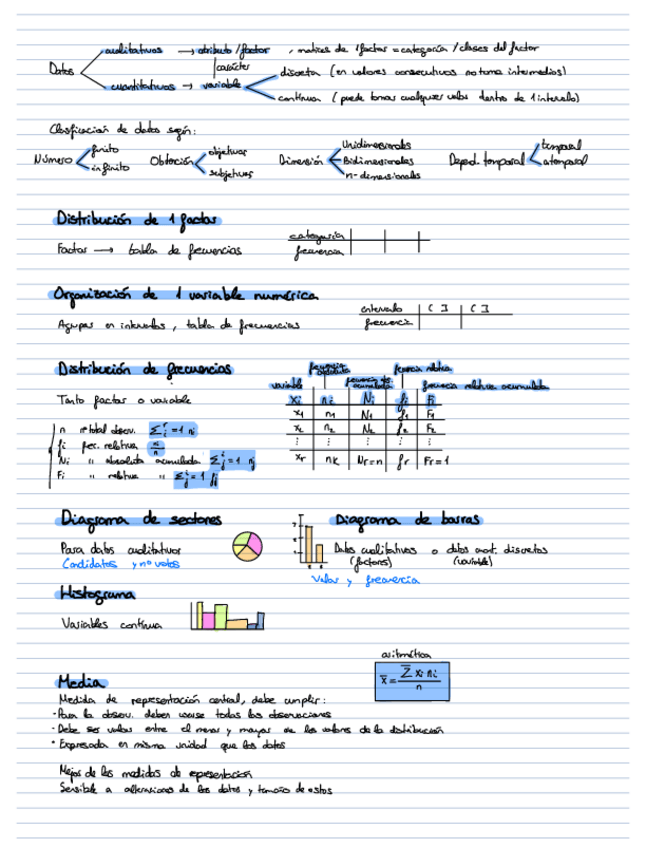 Datos
cualitativos → atributo/factor, matices de 1 factor = categoría / clases del factor
carácter
cuantitativos → variable
discreta (en valores consecutivos no toma intermedios)
continua (puede tomar cualquier valor dentro de 1 intervalo)
Clasificación de datos según:
Número finito infinito Obtención objetivos subjetivos Dimensión Unidimensionales Bidimensionales n-dimensionales Depend. temporal temporal atemporal
Distribución de 1 factor
Factor → tabla de frecuencias
categoría
frecuencia
Organización de 1 variable numérica
Agrupar en intervalos, tabla de frecuencias
intervalo ( ] ( ]
frecuencia
Distribución de frecuencias
Tanto factor o variable
n nº total observ. Σ =1 ni
fi frec. relativa ni/n
Ni " absoluta acumulada Σ j=1 nj
Fi " relativa " Σ j=1 fj
variable frecuencia absoluta frecuencia abs. acumulada frecuencia relativa frecuencia relativa acumulada
xi ni Ni fi Fi
x1 n1 N1 f1 F1
x2 n2 N2 f2 F2
⋮ ⋮ ⋮ ⋮ ⋮
xr nk Nr=n fr Fr=1
Diagrama de sectores
Para datos cualitativos
Candidatos y nº votos
Diagrama de barras
Datos cualitativos o datos cuant. discretos
(factores) (variable)
Valor y frecuencia
Histograma
Variables continua
aritmética
x̄ = Σ xi ni / n
Media
Medida de representación central, debe cumplir:
· Para la observ. deben usarse todas las observaciones
· Debe ser valor entre el menor y mayor de los valores de la distribución
· Expresada en misma unidad que los datos
Mejor de las medidas de representación
Sensible a alteraciones de los datos y tamaño de estos